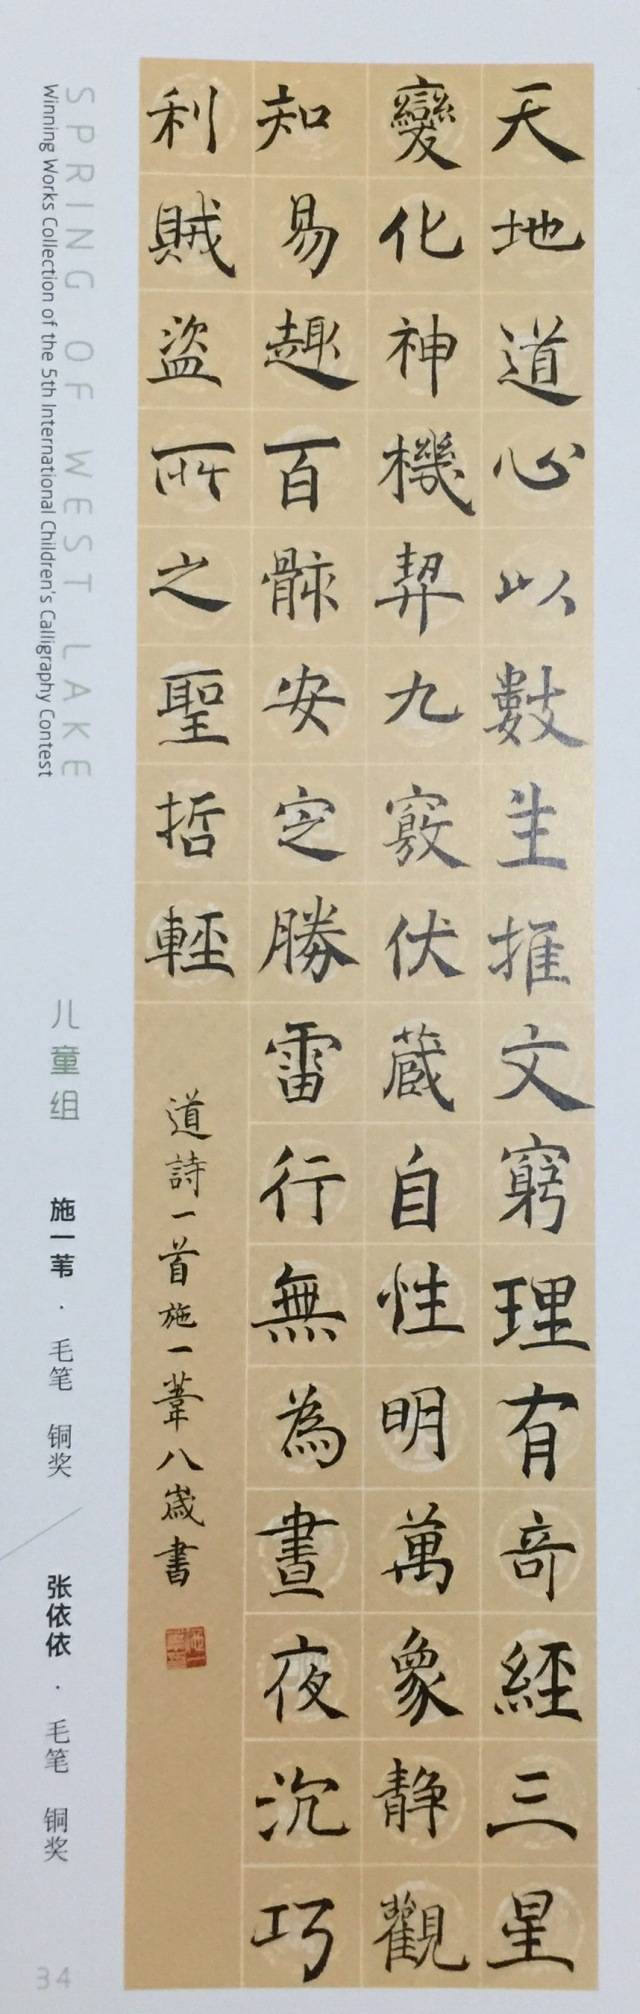 天地道心以數生推文窮理有奇經三星
變化神機契九竅伏蔵自性明萬象静觀
知易趣百骸安定勝雷行無為晝夜沉巧
利賊盜所之聖哲輕
道詩一首施一葦八歲書
SPRING OF WEST LAKE
Winning Works Collection of the 5th International Children's Calligraphy Contest
儿童组
施一苇 · 毛笔 铜奖
张依依 · 毛笔 铜奖
34